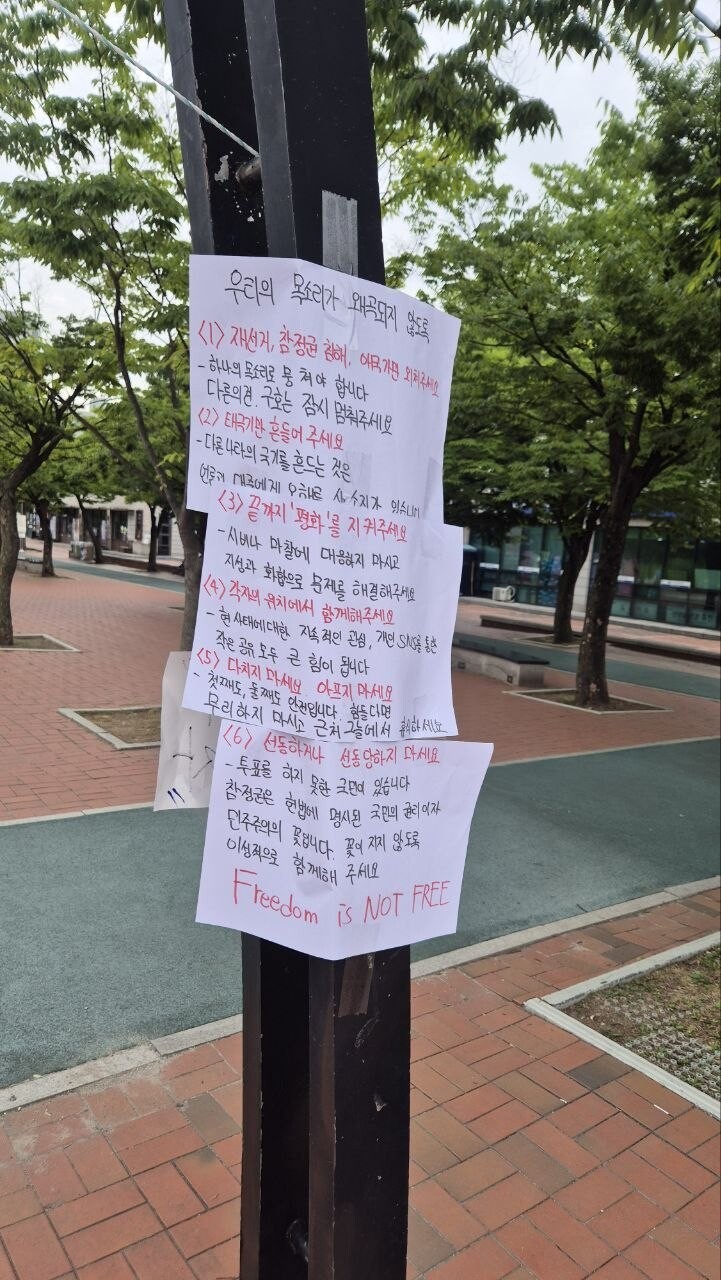 우리의 목소리가 왜곡되지 않도록
<1> 재선거, 참정권 침해, 애국가만 외쳐주세요
- 하나의 목소리로 뭉쳐야 합니다
다른의견. 구호는 잠시 멈춰주세요
<2> 태극기만 흔들어 주세요
- 다른나라의 국기를 흔드는 것은
대중에게 오해를 살 수지가 있습니다
<3> 끝까지 '평화'를 지켜주세요
- 시비나 마찰에 대응하지 마시고
지성과 화합으로 문제를 해결해주세요
<4> 각자의 위치에서 함께해주세요
- 현 사태에대한 지속적인 관심, 개인 SNS을 통한
작은 공유 모두 큰 힘이 됩니다
<5> 다치지 마세요 아프지 마세요
- 첫째도, 둘째도 안전입니다. 힘들다면
무리하지 마시고 근처 그늘에서 휴식하세요
<6> 선동하거나 선동당하지 마세요
- 투표를 하지 못한 국민이 있습니다
참정권은 헌법에 명시된 국민의 권리이자
민주주의의 꽃입니다. 꽃이 지지 않도록
이성적으로 함께해 주세요
Freedom is NOT FREE